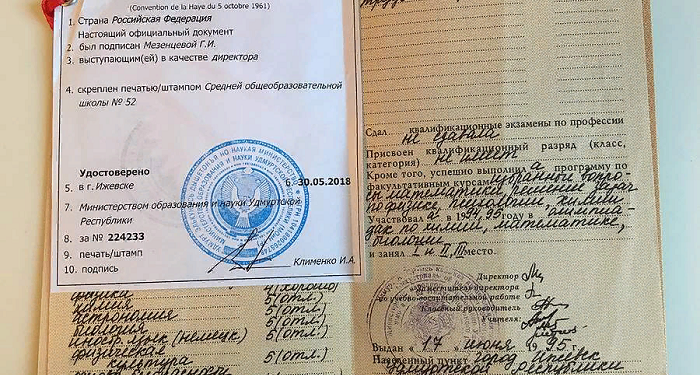 (Convention de la Haye du 5 octobre 1961)
1. Страна Российская Федерация
Настоящий официальный документ
2. был подписан Мезенцевой Г.И.
3. выступающим(ей) в качестве директора
4. скреплен печатью/штампом Средней общеобразовательной
школы № 52
Удостоверено
5. в г.Ижевске
6. 30.05.2018
7. Министерством образования и науки Удмуртской
Республики
8. за № 224233
9. печать/штамп
10. подпись
Клименко И.А.
4 (хорошо)
физика
химия 5 (отл.)
астрономия 5 (отл.)
биология 5 (отл.)
иностр. язык (немецк.) 5 (отл.)
физическая
культура 5 (отл.)
Сдал квалификационные экзамены по профессии
не сдавала
Присвоен квалификационный разряд (класс,
категория) не имеет
Кроме того, успешно выполнил а программу по
факультативным курсам избранные вопро-
сы математики, решение задач
по физике, психологии, химии
Участвовал а в 1994, 95 году в олимпиа-
дах по химии, математике,
биологии
и занял I и II, III место.
Директор
Заместитель директора
по учебно-воспитательной работе
Классный руководитель
учителя:
Выдан " 17 " июня 19 95 г.
Населенный пункт город Ижевск
Удмуртской республики